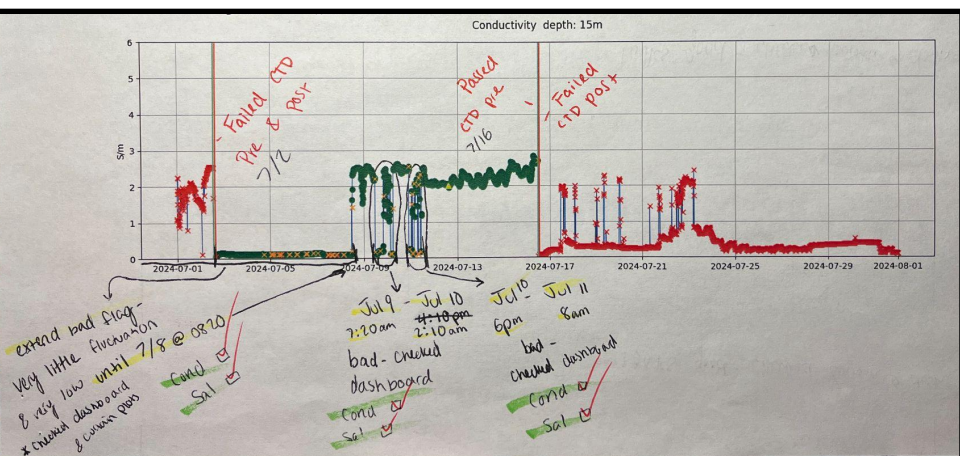 Conductivity depth: 15m
6
5
4
3
2
1
0
S/m
2024-07-01
2024-07-05
2024-07-09
2024-07-13
2024-07-17
2024-07-21
2024-07-25
2024-07-29
2024-08-01
- Failed CTD
Pre & Post
7/2
Passed
CTD pre
7/16
- Failed
CTD post
extend bad flag -
very little fluctuation
& very low until 7/8 @ 0820
* checked dashboard
& plots
Cond ☑
Sal ☑
Jul 9 - Jul 10
4:10pm
7:20am 2:10am
bad - checked
dashboard
Cond ☑
Sal ☑
Jul 10 - Jul 11
6pm 8am
bad -
checked dashboard
Cond ☑
Sal ☑